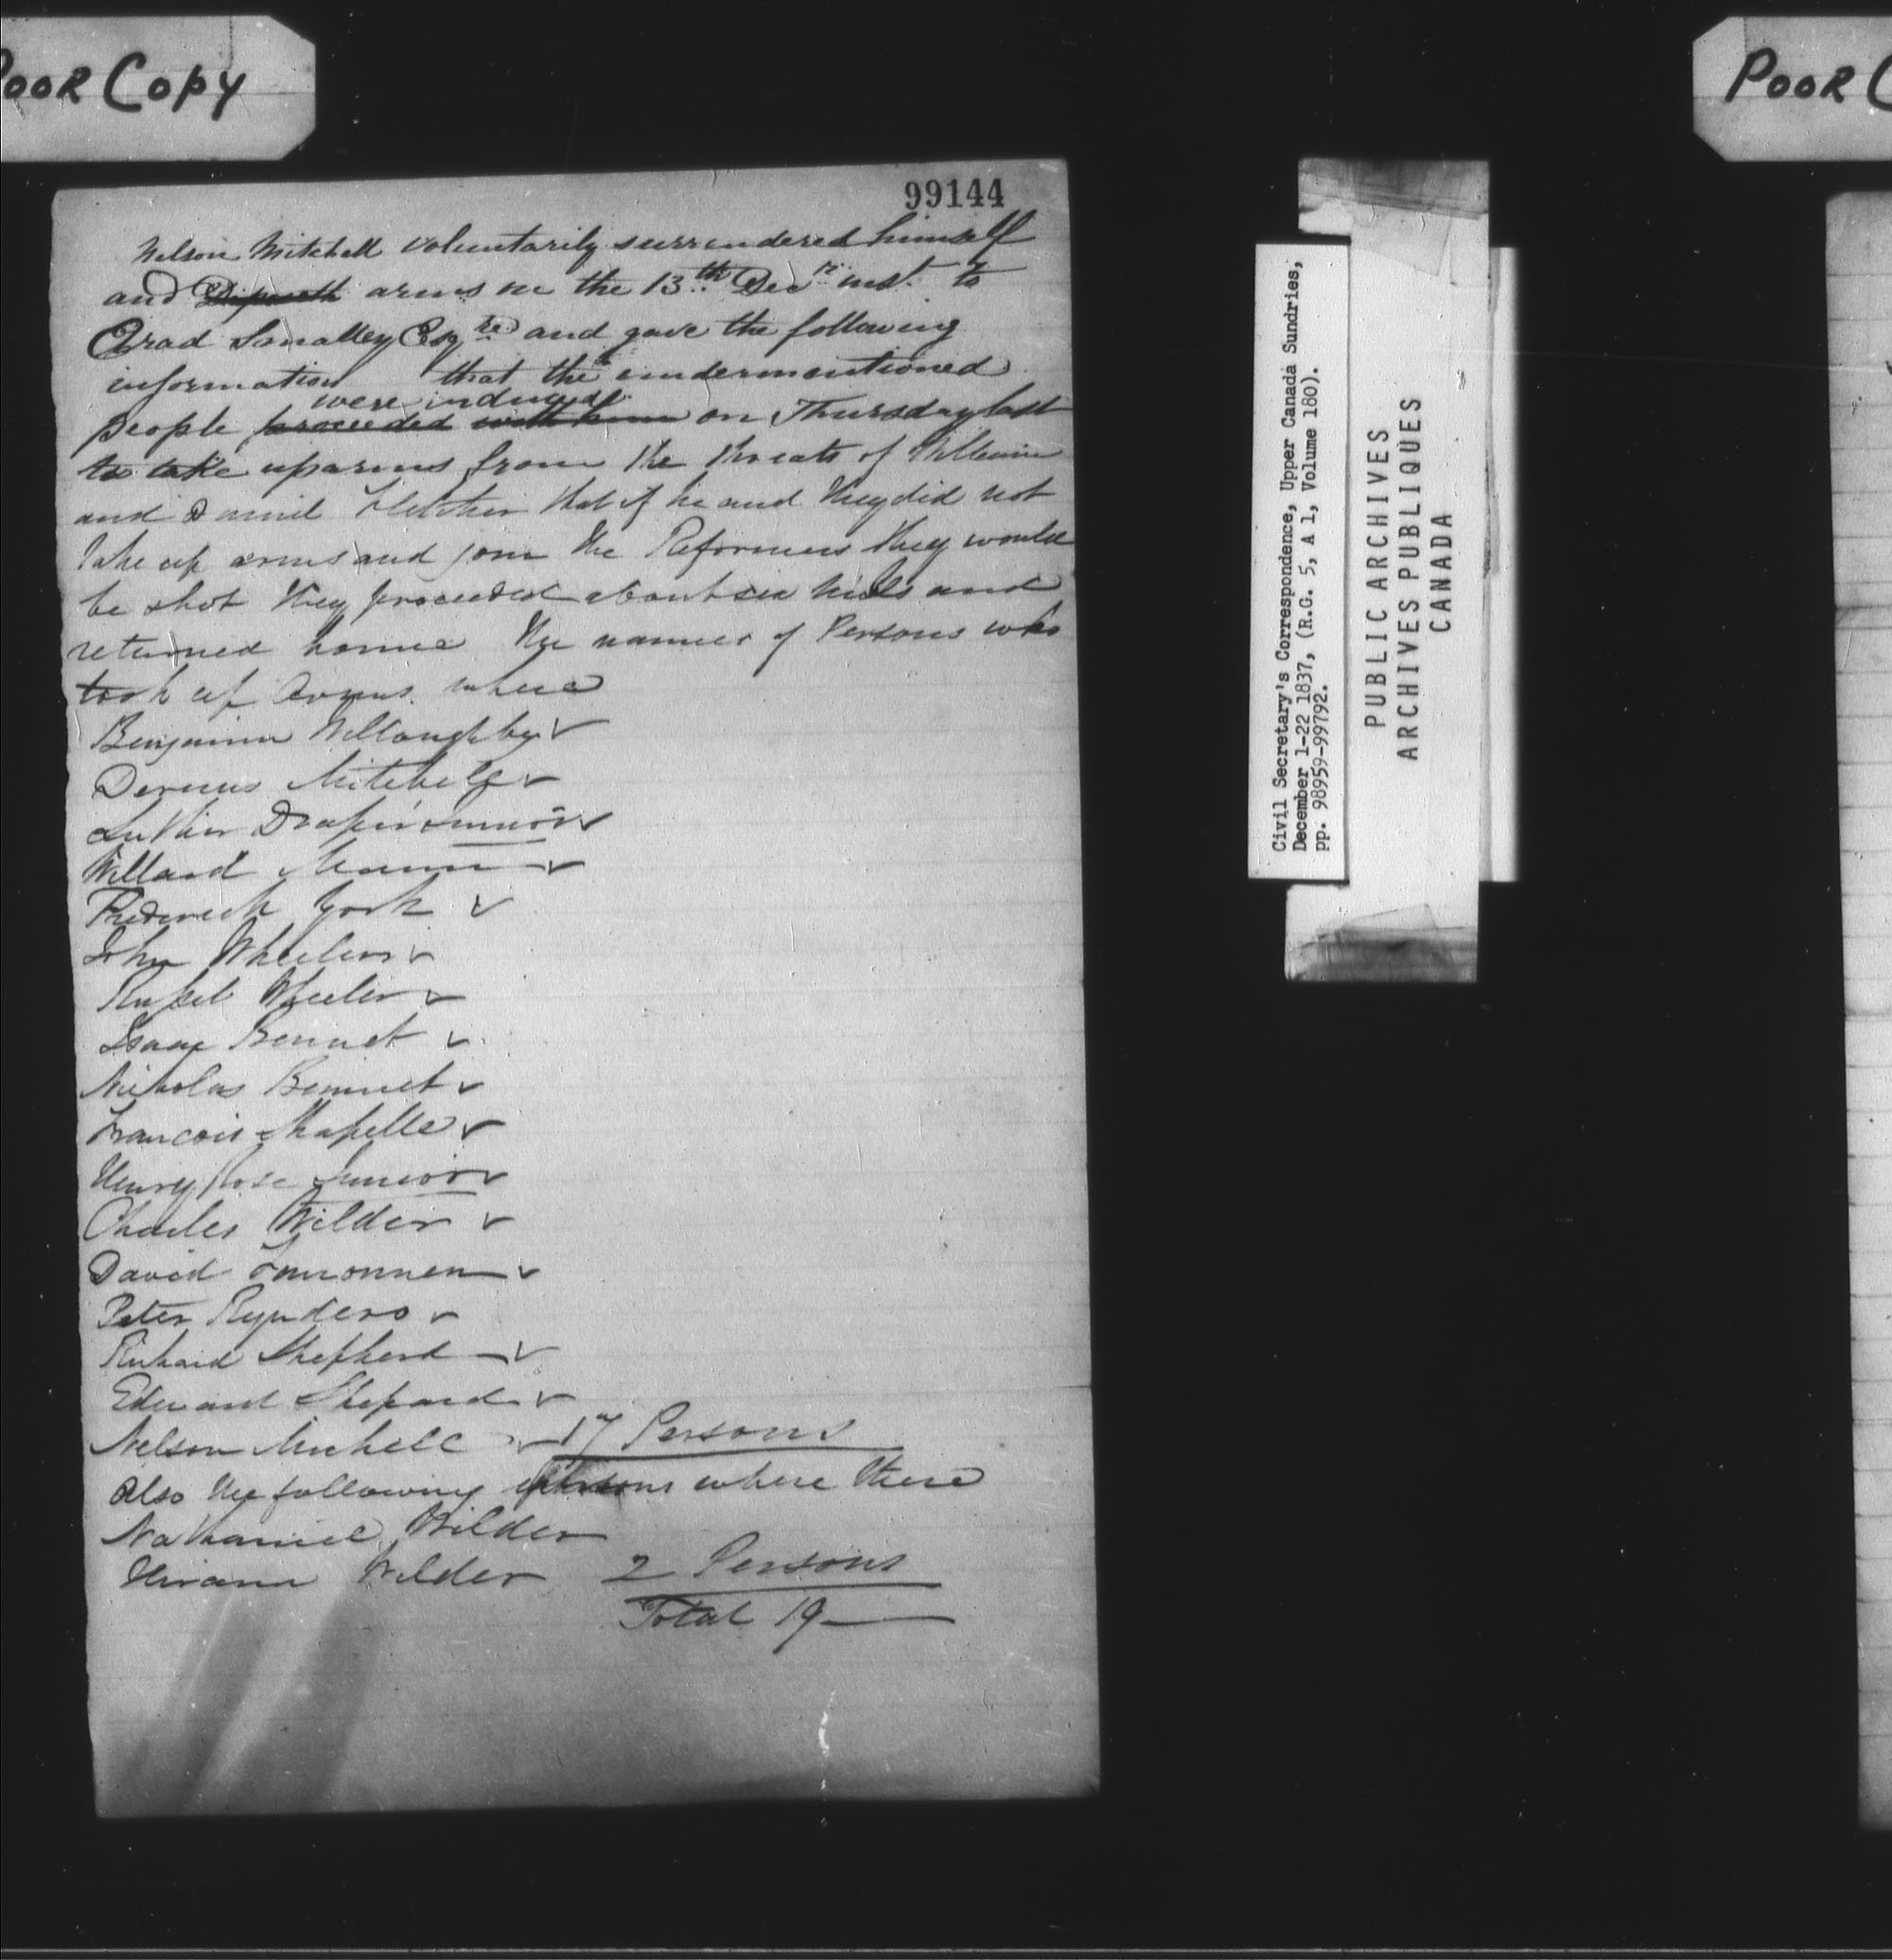 Poor Copy
99144
Nelson Mitchell voluntarily surrendered himself
and arms on the 13th Decr inst. to
Arad Smalley Esqre and gave the following
information that the undermentioned
were induced
People proceeded with him on Thursday last
to take up arms from the threats of William
and Daniel Fletcher that if he and they did not
take up arms and join the Reformers they would
be shot they proceeded about six miles and
returned home The names of Persons who
took up arms where
Benjamin Willoughby
Mitchell
Luther Draper Junior
Willard Mann
Frederick York
John Wheeler
Russel Wheeler
Isaac Bennet
Nicholas Bennet
Francois Shapelle
Henry Rose Junior
Charles Wilder
David
Peter Rynders
Richard Shepherd
Edward Shepard
Nelson Michell 17 Persons
Also the following persons where there
Nathaniel Wilder
Hiram Wilder 2 Persons
Total 19
Civil Secretary's Correspondence, Upper Canada Sundries,
December 1-22 1837, (R.G. 5, A 1, Volume 180).
pp. 98959-99792.
PUBLIC ARCHIVES
ARCHIVES PUBLIQUES
CANADA
Poor C